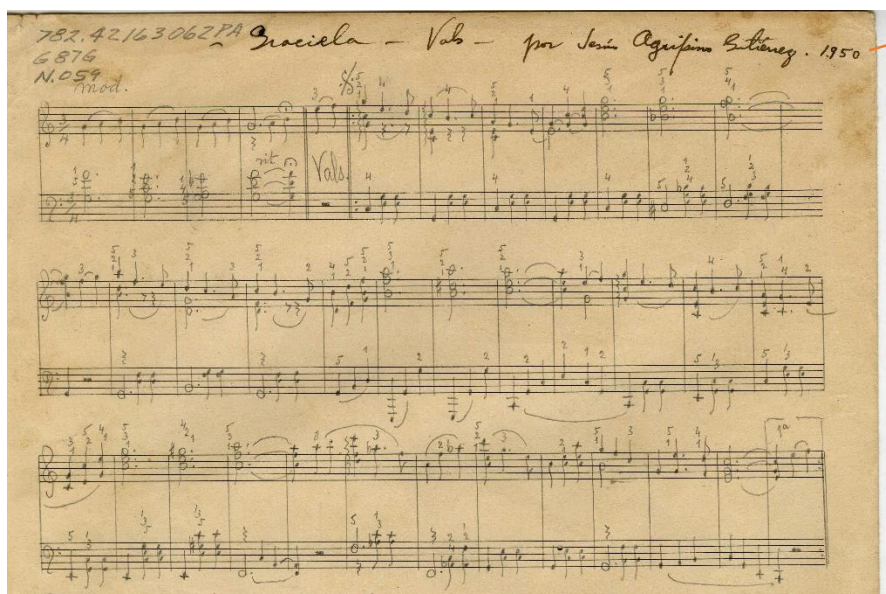 782.42163062PA
G876
N.059
Graciela - Vals - por Jesús Agripino Gutiérrez. 1950
mod.
rit
Vals.
1ª